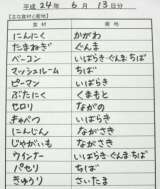 平成 24年 6月 13日分
【主な食材と産地】
食材 産地
にんにく かがわ
たまねぎ ぐんま
ベーコン いばらき ぐんま ちば
マッシュルーム ちば
ピーマン いばらき
ぶたにく くまもと
セロリ ながの
キャベツ いばらき
にんじん ながさき
じゃがいも ながさき
ウインナー いばらき ぐんま ちば
パセリ ちば
きゅうり さいたま